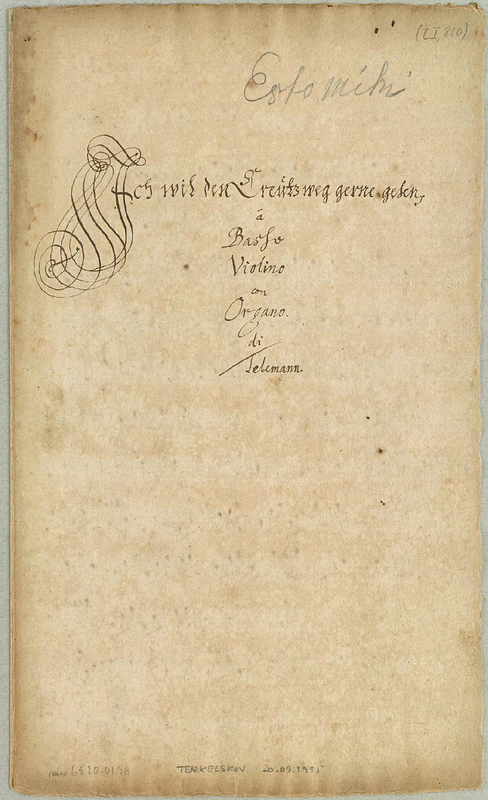 (LI, 810)
Estomihi
Ich wil den Creutzweg gerne gehen,
à
Basso
Violino
con
Organo.
di
Telemann.
TERKELSKOV 20.09.1995